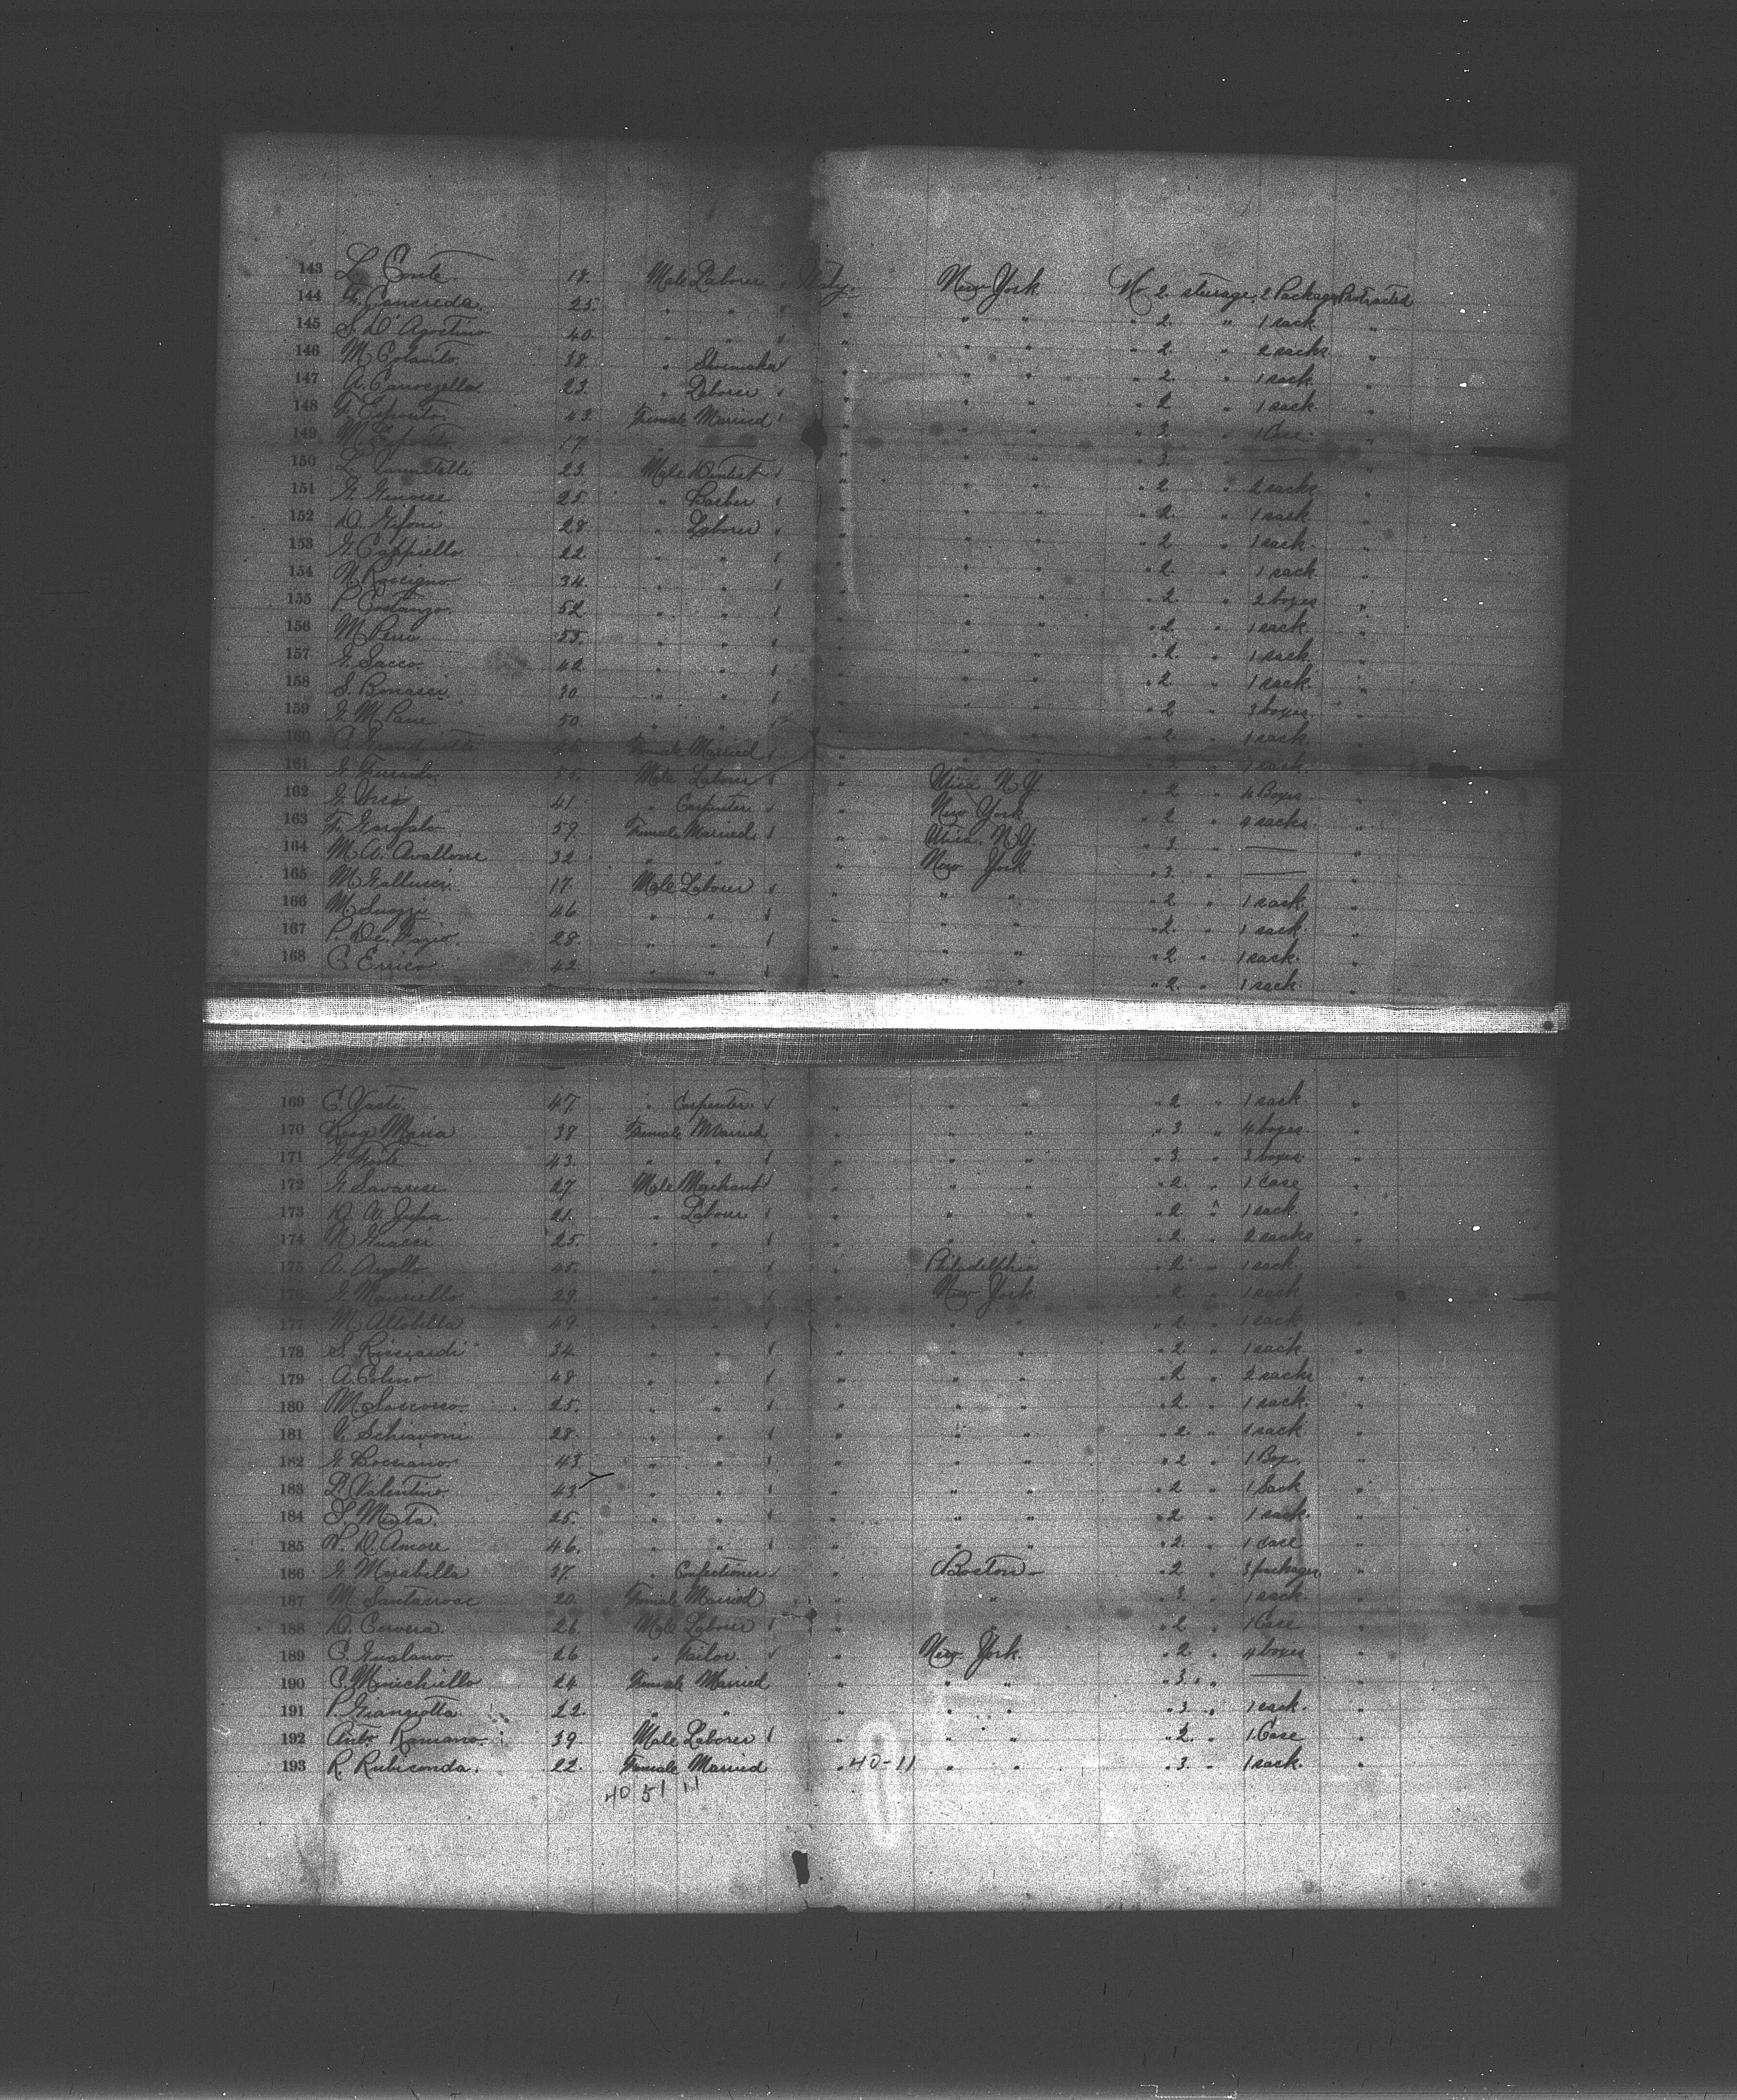 143 L. Conte. 18. Male Laborer Italy. New York No 2 sterage, 2 Packages Protracted
144 25. " " " " " " 2. " 1 sack "
145 S. D'Agostino 40. " " " " " " 2. " 2 sacks "
146 M. Colavito. 38. " Shoemaker " " " " 2. " 1 sack "
147 A. Carrozzella 23. " Laborer " " " " 2 " 1 sack. "
148 G. Esposito. 43. Female Married " " " " 3. " 1 Case. "
149 M. Esposito 17. " " " " " 3. " —
150 L. 23. Male Dentist " " " " 2 " 2 sacks "
151 G. Genovese 25. " Barber " " " " 2. " 1 sack "
152 D. Gifoni 28. " Laborer " " " " 2 " 1 sack. "
153 G. Cappiello 22 " " " " " " 2. " 1 sack "
154 N. Roscigno 34. " " " " " " 2. " 2 boxes "
155 P. Costanzo. 52. " " " " " " 2. " 1 sack. "
156 M. Perri 55. " " " " " " 2. " 1 sack "
157 G. Sacco. 42 " " " " " " 2. " 1 sack. "
158 S. Bonacci. 30 " " " " " " 2 " 3 boxes "
159 G. M. Pane 50. " " " " " " 2. " 1 sack. "
160 C. Female Married " " " " 3. " 1 sack. "
161 G. 55. Male Laborer " Utica N.Y. " 2 " 4 Boxes "
162 G. 41. " Carpenter " New York " 2 " sacks. "
163 F. Garofalo 59. Female Married " Utica. N.Y. " 3. " — "
164 M. A. Avallone 32 " " " New York " 3. " — "
165 M. Gallucci. 17. Male Laborer " " " " 2 " 1 sack. "
166 M. Suozzi 46 " " " " " " 2. " 1 sack. "
167 P. De Fazio. 28. " " " " " " 2 " 1 sack. "
168 C. Errico 42 " " " " " " 2. " 1 sack. "
169 C. Vasti. 47. " Carpenter. " " " " 2 " 1 sack "
170 Rosa Maria 38 Female Married " " " " 3. " 4 boxes. "
171 G. Forte 43. " " " " " " 3. " 3 boxes "
172 G. Savarese 27 Male Merchant " " " " 2. " 1 Case "
173 D. A. 21. " Laborer " " " " 2 " 1 sack. "
174 N. Guacci 25. " " " " " " 2. " 2 sacks "
175 A. 45. " " " Philadelphia " 2 " 1 sack. "
176 G. Mauriello 29. " " " New York. " 2 " 1 sack "
177 M. Altobella 49. " " " " " " 2 " 1 sack. "
178 S. Ricciardi 34 " " " " " " 2. " 1 sack. "
179 A. Colino 48 " " " " " " 2 " 2 sacks "
180 M. 25. " " " " " " 2. " 1 sack. "
181 V. Schiavoni 28. " " " " " " 2. " 1 sack. "
182 G. Bocciano. 43 " " " " " " 2 " 1 Box. "
183 L. Valentino. 43 " " " " " " 2 " 1 Sack "
184 S. Mesta. 25. " " " " " " 2 " 1 sack. "
185 D. Amore 46. " " " " " " 2. " 1 case "
186 G. Mirabella 37. " Confectioner " Boston — " 2 " 3 packages "
187 M. Santacroce 20. Female Married " " " 3. " 1 sack. "
188 D. Cervera. 26. Male Laborer " " 2 " 1 Case "
189 C. Gualano. 26 " Tailor. " New York. " 2. " 4 boxes "
190 C. Minichiello 24 Female Married " " " " 3. " — "
191 P. Gianzotta. 22. " " " " " " 3. " 1 sack. "
192 Anto Romano. 39 Male Laborer " " " " 2. " 1 Case "
193 R. Rubisonda. 22. Female Married " 40-11 " " " 3. " 1 sack. "
40 51 11